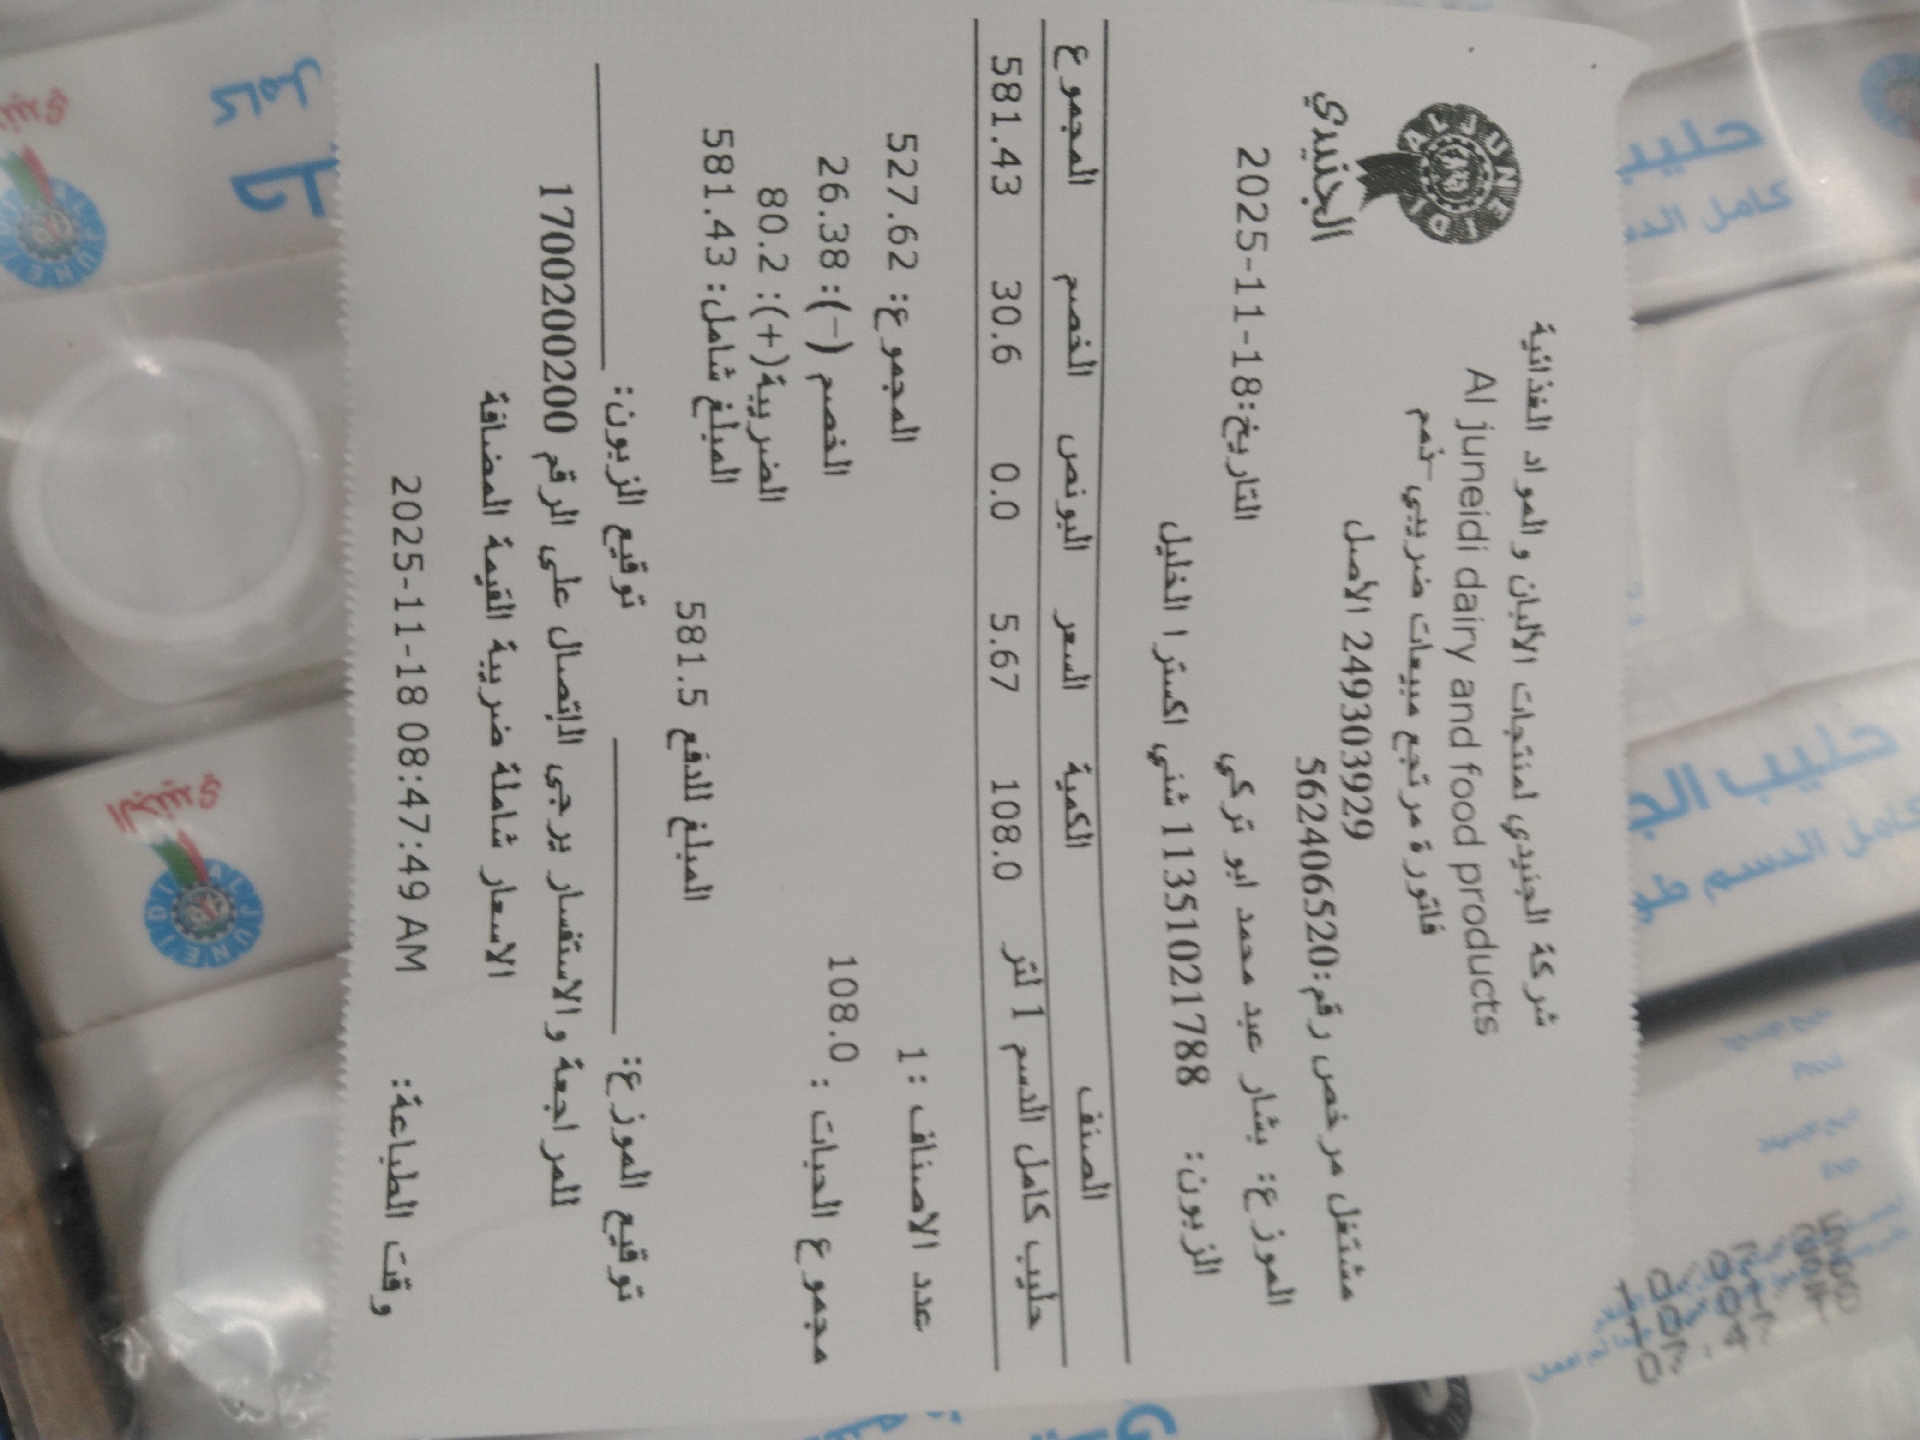 الجنيدي
AL JUNEIDI
شركة الجنيدي لمنتجات الألبان والمواد الغذائية
Al juneidi dairy and food products
فاتورة مرتجع مبيعات ضريبي-ذمم
249303929 الأصل
مشتغل مرخص رقم:562406520
الموزع: بشار عبد محمد ابو تركي
التاريخ:2025-11-18
الزبون: 11351021788 شني اكسترا الخليل
الصنف الكمية السعر البونص الخصم المجموع
حليب كامل الدسم 1 لتر 108.0 5.67 0.0 30.6 581.43
عدد الاصناف : 1
المجموع: 527.62
مجموع الحبات : 108.0
الخصم (-): 26.38
الضريبة(+): 80.2
المبلغ شامل: 581.43
المبلغ للدفع 581.5
توقيع الموزع:
توقيع الزبون:
للمراجعة والاستفسار يرجى الاتصال على الرقم 1700200200
الاسعار شاملة ضريبة القيمة المضافة
وقت الطباعة: 2025-11-18 08:47:49 AM
حليب
كامل الدسم
حليب
كامل الدسم
الجنيدي
JUNEIDI